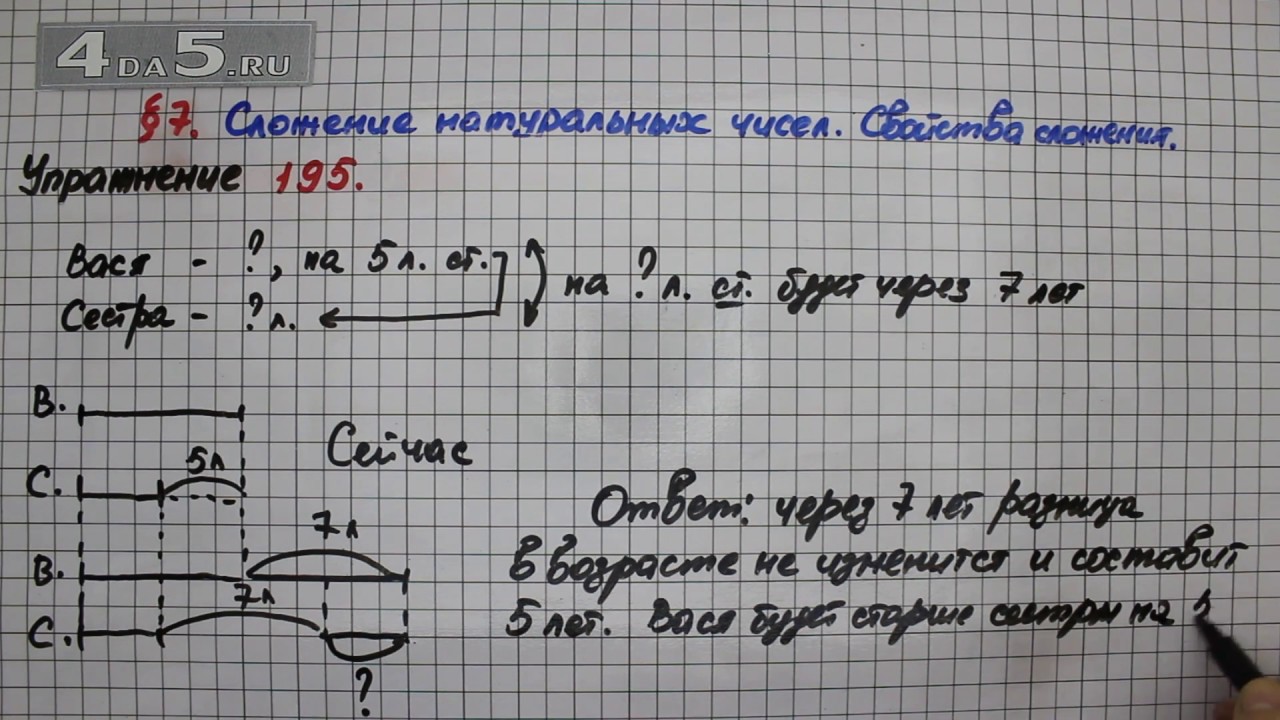 4DA5.RU
§7. Сложение натуральных чисел. Свойства сложения.
Упражнение 195.
Вася - ?, на 5 л. ст.
Сестра - ? л.
на ? л. ст. будет через 7 лет
В.
5 л
С.
Сейчас
7 л
В.
7 л
С.
?
Ответ: через 7 лет разница
в возрасте не изменится и составит
5 лет. Вася будет старше сестры на